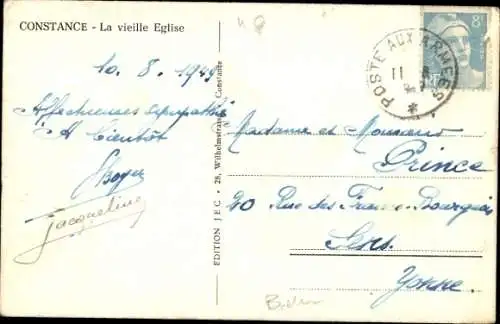 CONSTANCE - La vieille Eglise
10. 8. 1949
Affectueuses sympathies
A bientôt
SBoyer
Jacqueline
EDITION J E C • 28, Wilhelmstrasse, Constance
POSTE AUX ARMEES
11 8
8F
Madame et Monsieur
Prince
20 Rue des Francs-Bourgeois
Sens
Yonne.